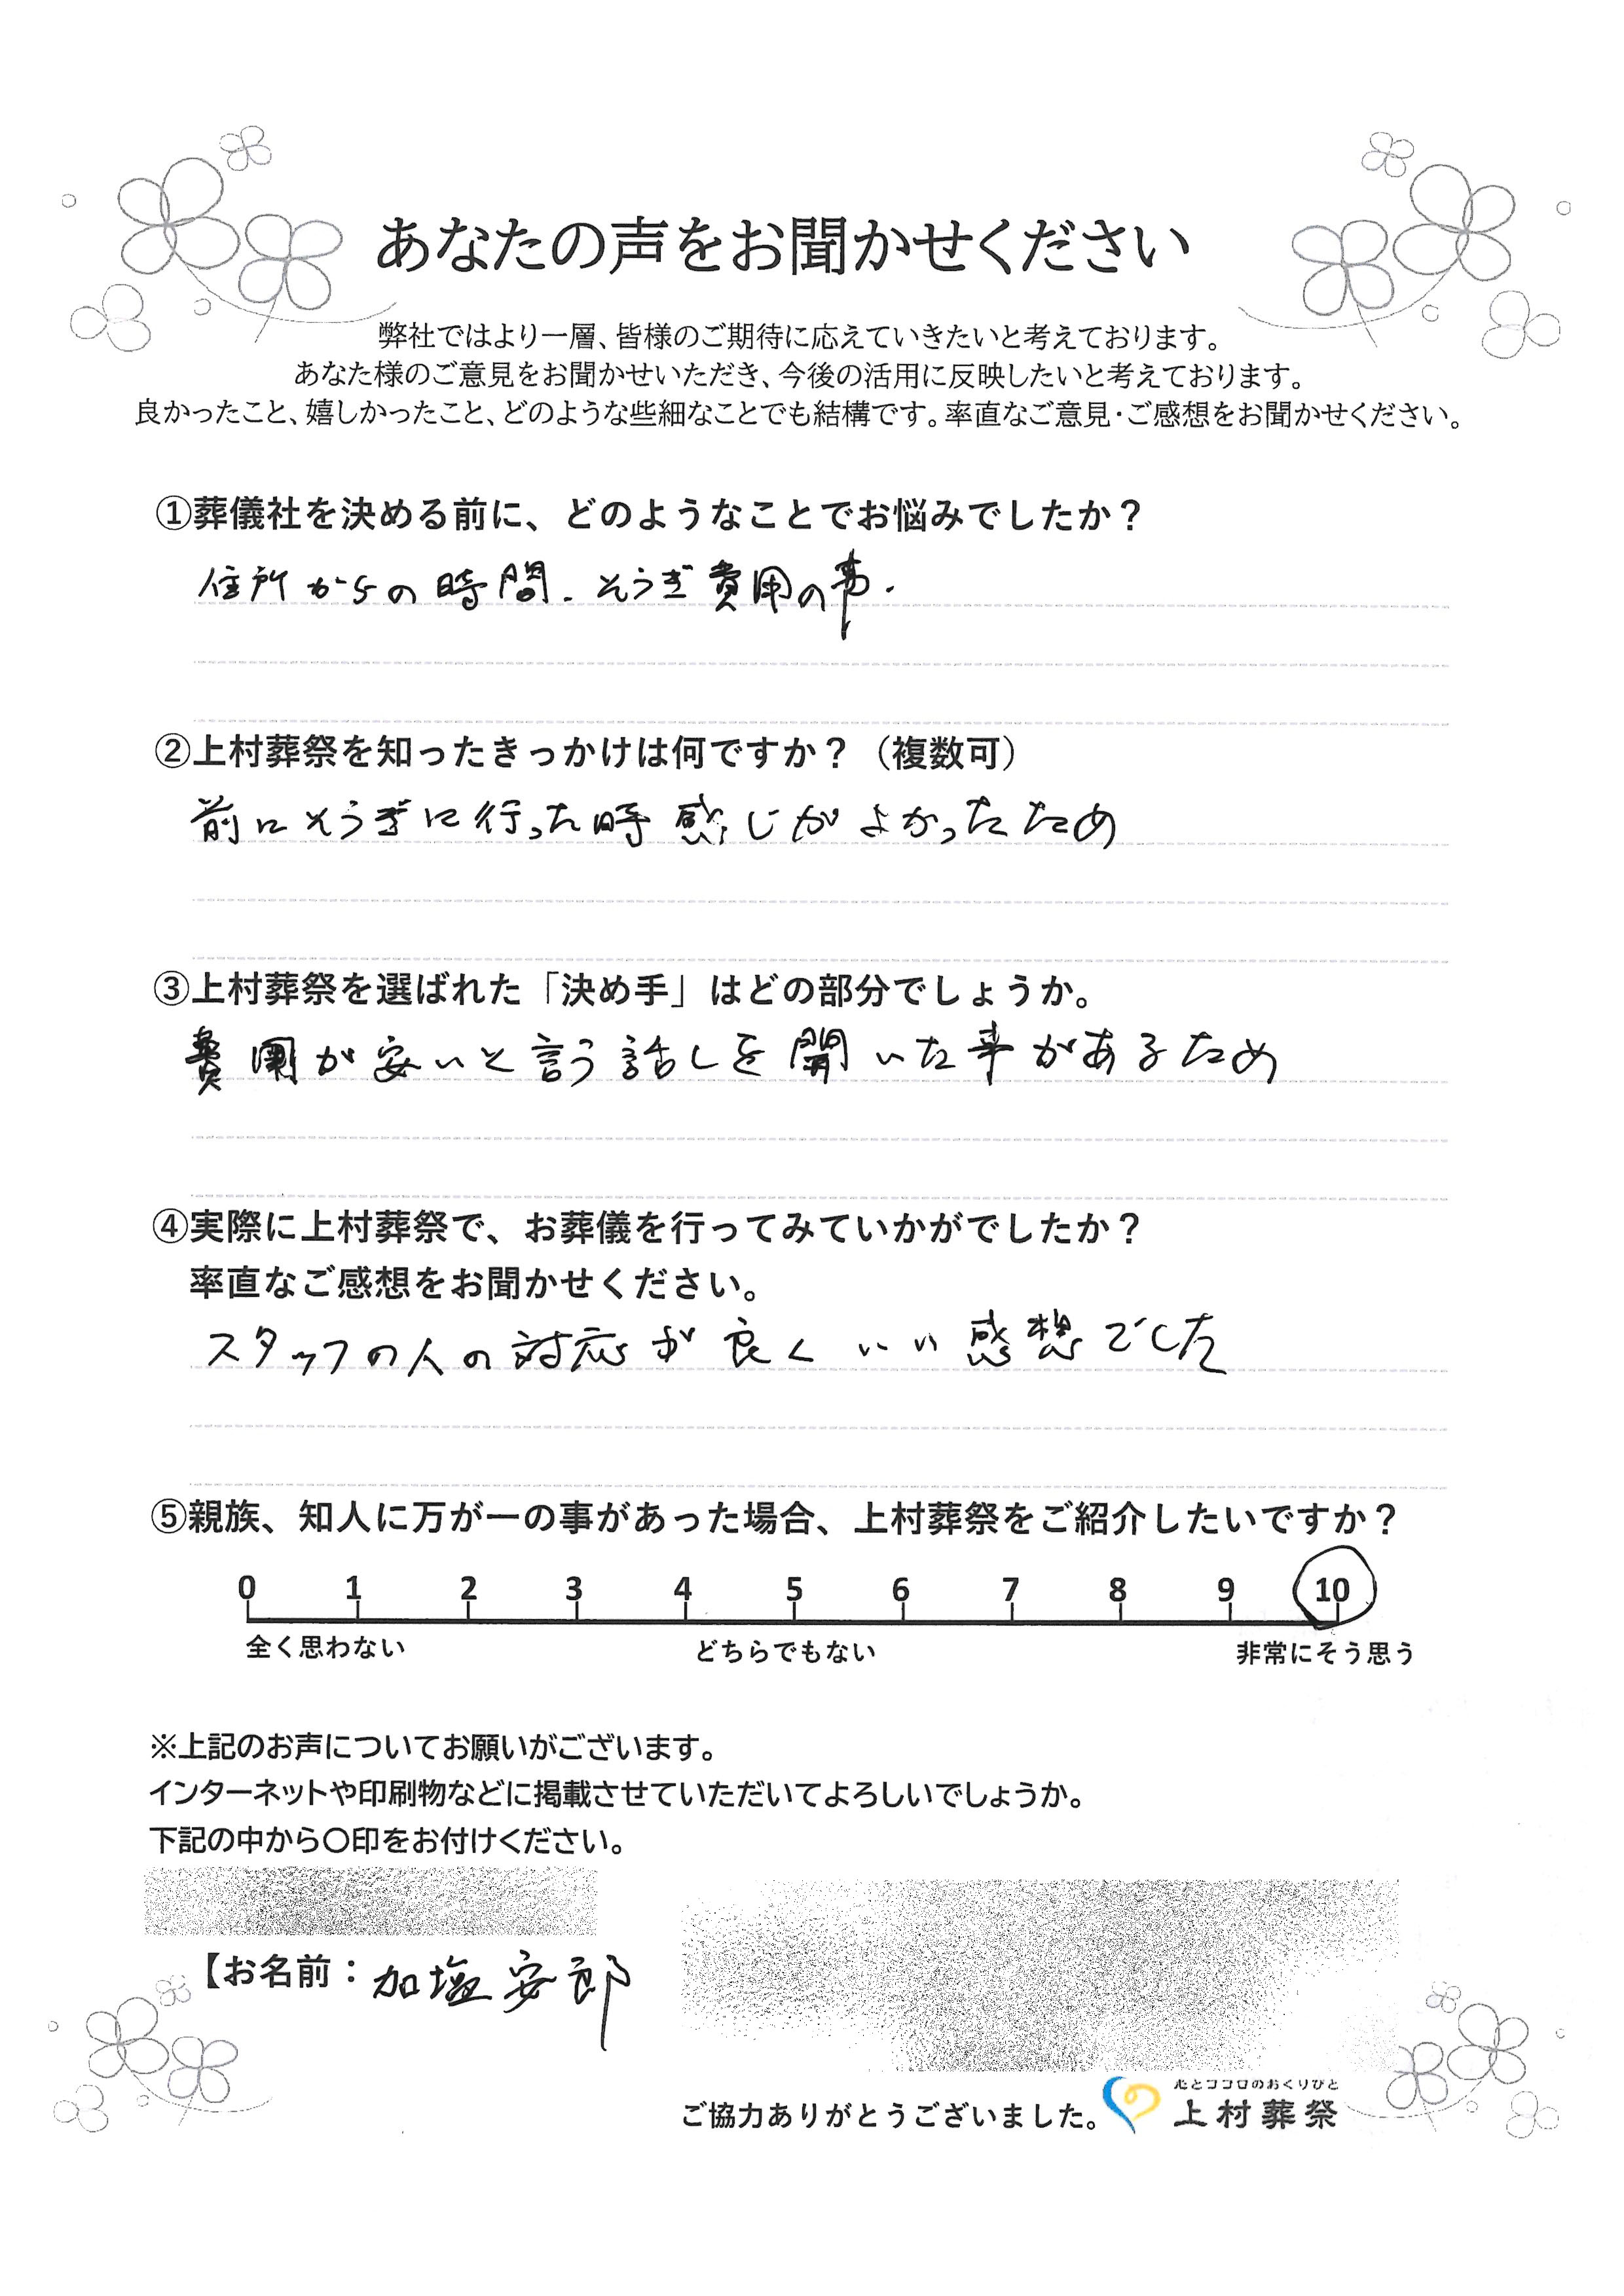 あなたの声をお聞かせください
弊社ではより一層、皆様のご期待に応えていきたいと考えております。
あなた様のご意見をお聞かせいただき、今後の活用に反映したいと考えております。
良かったこと、嬉しかったこと、どのような些細なことでも結構です。率直なご意見・ご感想をお聞かせください。
①葬儀社を決める前に、どのようなことでお悩みでしたか？
住所からの時間．そうぎ費用の事．
②上村葬祭を知ったきっかけは何ですか？（複数可）
前にそうぎに行った時感じがよかったため
③上村葬祭を選ばれた「決め手」はどの部分でしょうか。
費用が安いと言う話しを聞いた事があるため
④実際に上村葬祭で、お葬儀を行ってみていかがでしたか？
率直なご感想をお聞かせください。
スタッフの人の対応が良くいい感想でした
⑤親族、知人に万が一の事があった場合、上村葬祭をご紹介したいですか？
0 1 2 3 4 5 6 7 8 9 10
全く思わない どちらでもない 非常にそう思う
※上記のお声についてお願いがございます。
インターネットや印刷物などに掲載させていただいてよろしいでしょうか。
下記の中から〇印をお付けください。
【お名前：加塩安郎
心とココロのおくりびと
ご協力ありがとうございました。上村葬祭